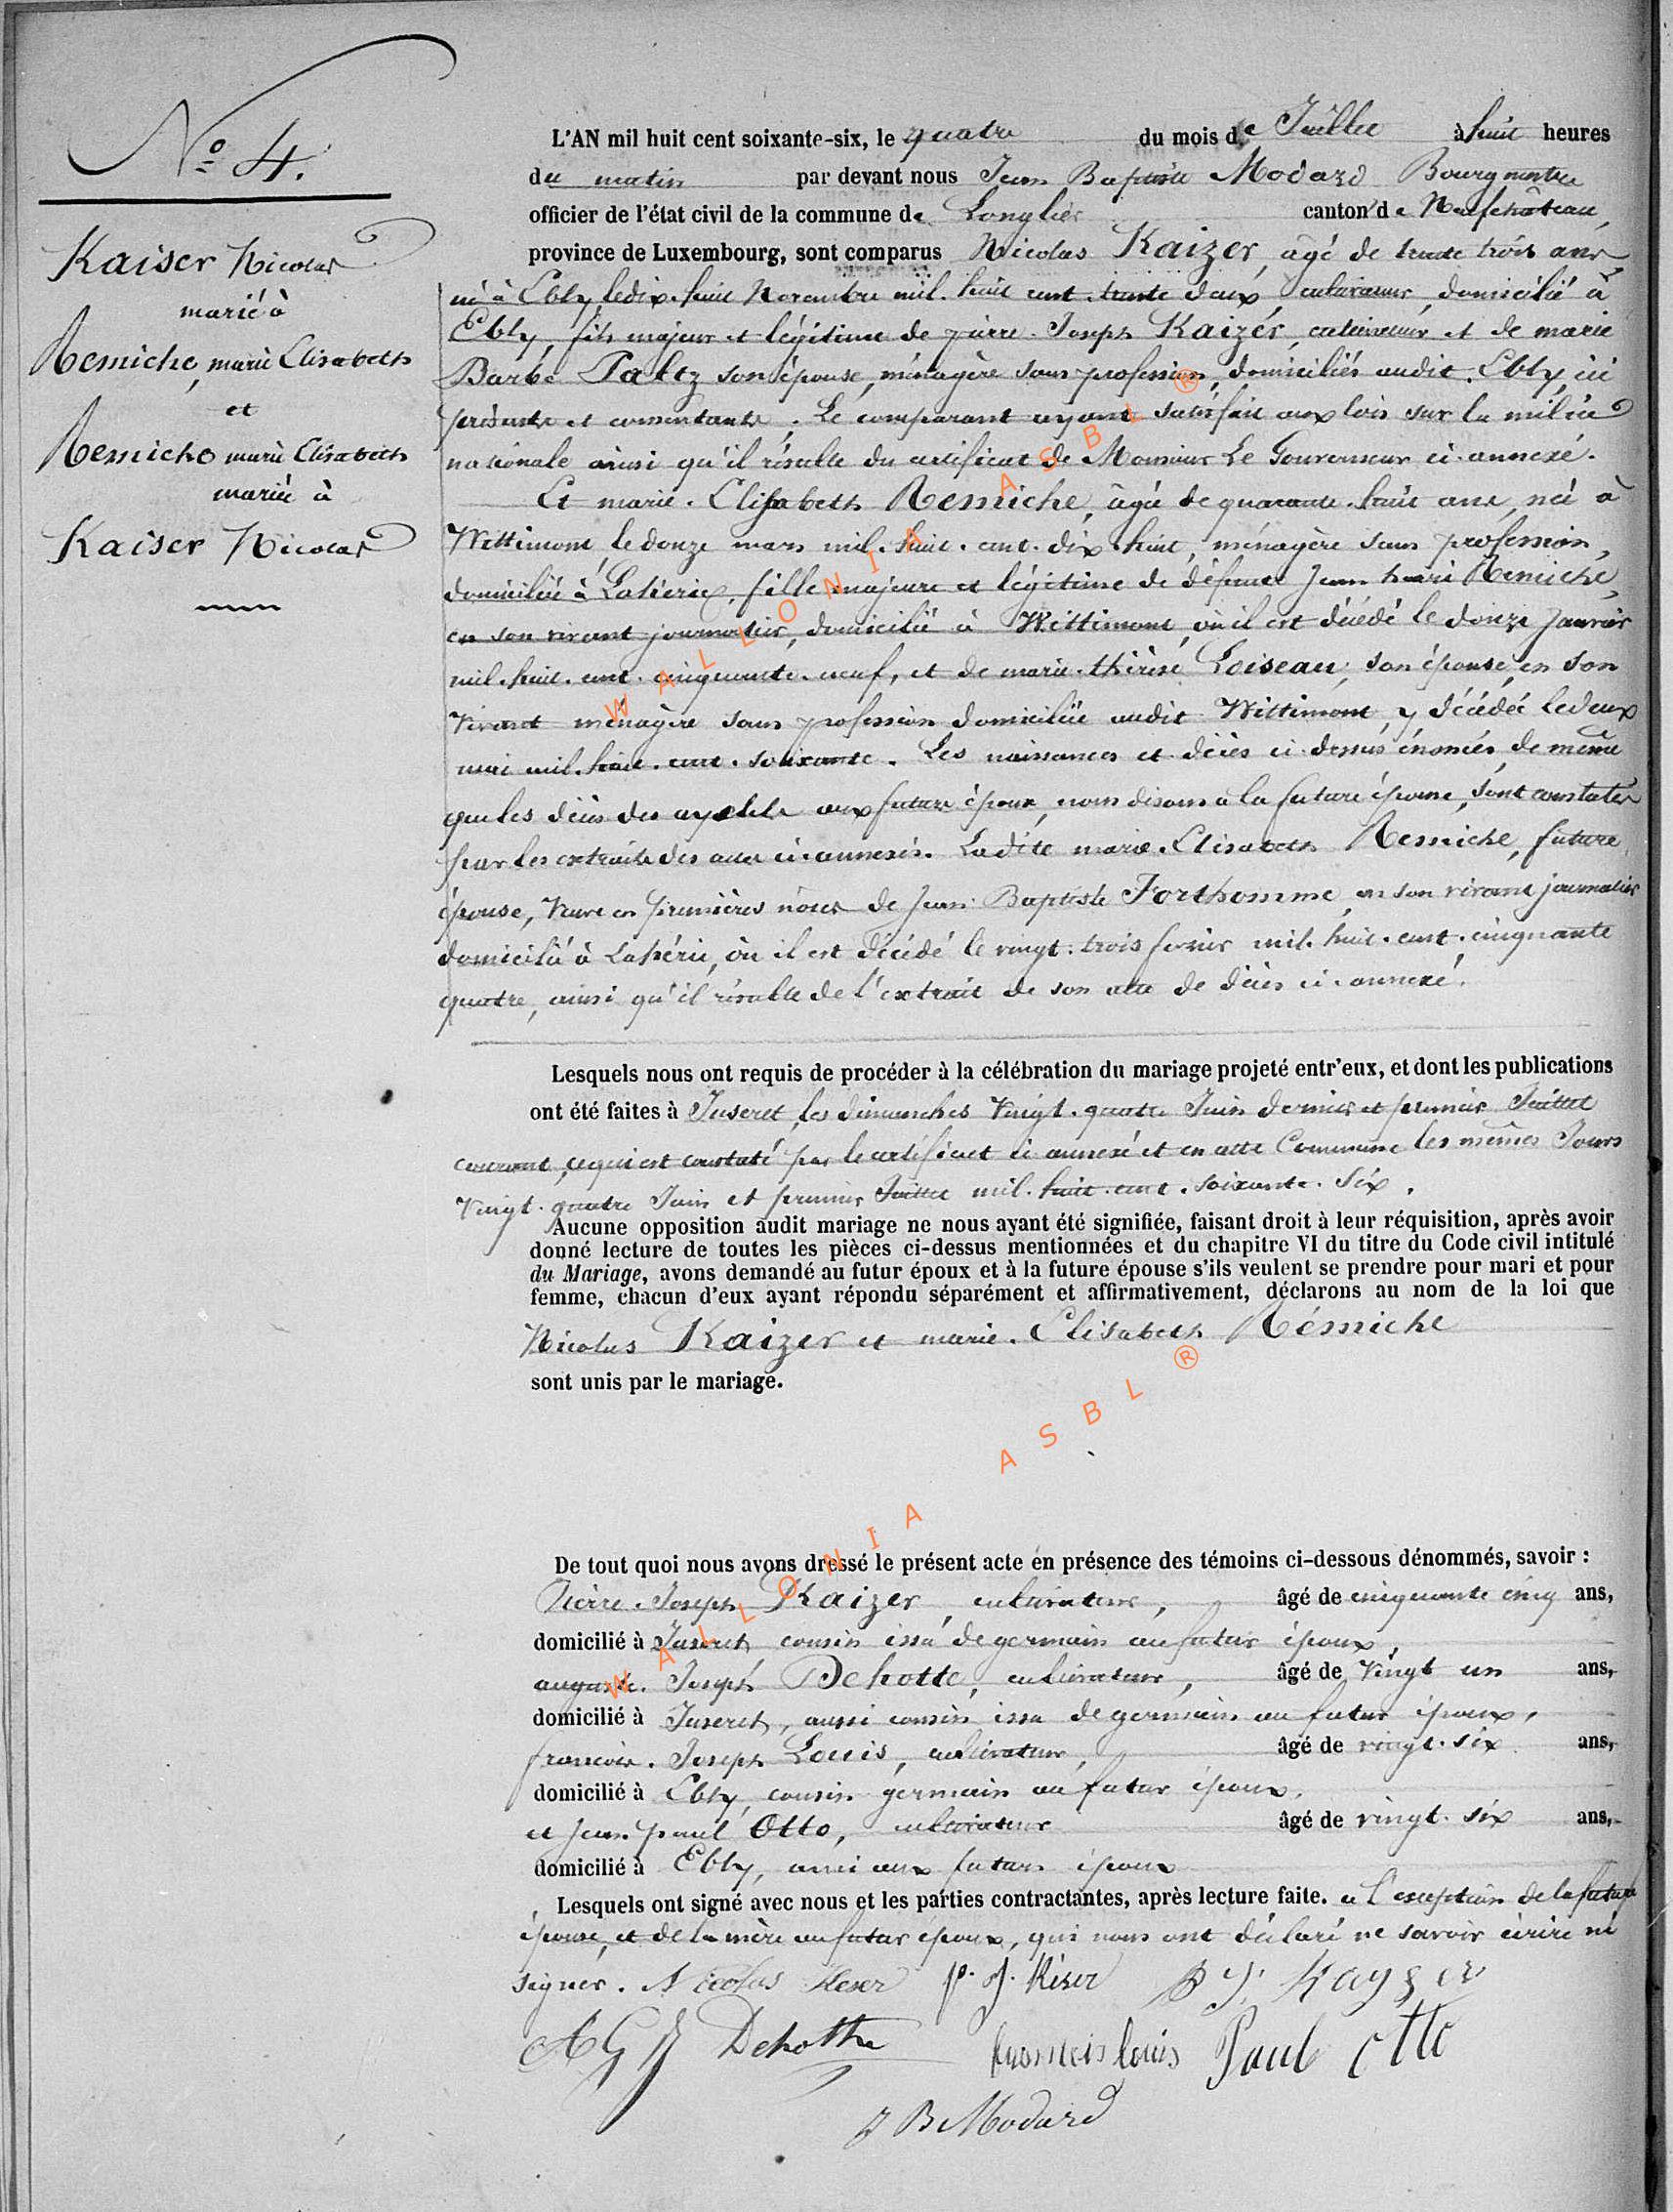 N.o 4.
Kaiser Nicolas
marié à
Remiche, marie Elisabeth
et
Remiche marie Elisabeth
mariée à
Kaiser Nicolas
L'AN mil huit cent soixante-six, le quatre du mois de Juillet à huit heures
du matin par devant nous Jean Baptiste Modard Bourgmestre
officier de l'état civil de la commune de Longlier canton de Neufchâteau,
province de Luxembourg, sont comparus Nicolas Kaizer, âgé de trente trois ans
né à Ebly le dix-huit Novembre mil-huit cent-trente deux, cultivateur, domicilié à
Ebly, fils majeur et légitime de pierre-Joseph Kaizer, cultivateur et de marie
Barbe Paltz son épouse, ménagère sans profession, domiciliés audit Ebly, ici
présents et consentants. Le comparant ayant satisfait aux lois sur la milice
nationale ainsi qu'il résulte du certificat de Monsieur Le Gouverneur ci-annexé.
Et marie-Elisabeth Remiche, âgée de quarante-huit ans, née à
Wittimont, le douze mars mil-huit-cent-dix-huit, ménagère sans profession,
domiciliée à Lahérie, fille majeure et légitime de défunt Jean henri Remiche,
en son vivant journalier, domicilié à Wittimont, où il est décédé le douze Janvier
mil-huit-cent-cinquante-neuf, et de marie-thérèse Loiseau, son épouse, en son
vivant ménagère sans profession domiciliée audit Wittimont, y décédée le deux
mai mil-huit-cent-soixante. Les naissances et décès ci-dessus énoncés, de même
que les décès des ayeuls aux futurs époux, nous disons à la future épouse, sont constatés
par les extraits des actes ci-annexés. Ladite marie-Elisabeth Remiche, future
épouse, Veuve en premières nôces de Jean Baptiste Forthomme, en son vivant journalier
domicilié à Lahérie, où il est décédé le vingt-trois février mil-huit-cent-cinquante
quatre, ainsi qu'il résulte de l'extrait de son acte de décès ci-annexé.
Lesquels nous ont requis de procéder à la célébration du mariage projeté entr'eux, et dont les publications
ont été faites à Juseret, les dimanches Vingt-quatre Juin dernier et premier Juillet
courant, ce qui est constaté par le certificat ci annexé et en cette Commune les mêmes Jours
Vingt-quatre Juin et premier Juillet mil-huit-cent-soixante-six.
Aucune opposition audit mariage ne nous ayant été signifiée, faisant droit à leur réquisition, après avoir
donné lecture de toutes les pièces ci-dessus mentionnées et du chapitre VI du titre du Code civil intitulé
du Mariage, avons demandé au futur époux et à la future épouse s'ils veulent se prendre pour mari et pour
femme, chacun d'eux ayant répondu séparément et affirmativement, déclarons au nom de la loi que
Nicolas Kaizer et marie-Elisabeth Rémiche
sont unis par le mariage.
De tout quoi nous avons dressé le présent acte en présence des témoins ci-dessous dénommés, savoir :
Pierre-Joseph Kaizer, cultivateur, âgé de cinquante cinq ans,
domicilié à Juseret cousin issu de germain au futur époux,
auguste-Joseph Dehotte, cultivateur, âgé de Vingt un ans,
domicilié à Juseret, aussi cousin issu de germain au futur époux,
francois-Joseph Louis, cultivateur, âgé de vingt-six ans,
domicilié à Ebly, cousin germain au futur époux,
et Jean paul Otto, cultivateur âgé de vingt-six ans,
domicilié à Ebly, ami aux futurs époux
Lesquels ont signé avec nous et les parties contractantes, après lecture faite. à l'exception de la future
épouse, et de la mère au futur époux, qui nous ont déclaré ne savoir écrire ni
signer. Nicolas Keser p. J. Késer P J. Kayser
A G J Dehotte francois louis Paul Otto
J B Modard
WALLONIA ASBL ®
WALLONIA ASBL ®